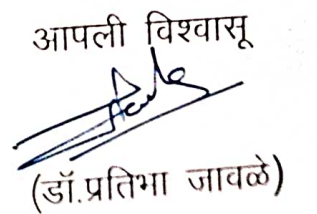 आपली विश्वासू
(डॉ.प्रतिभा जावळे)